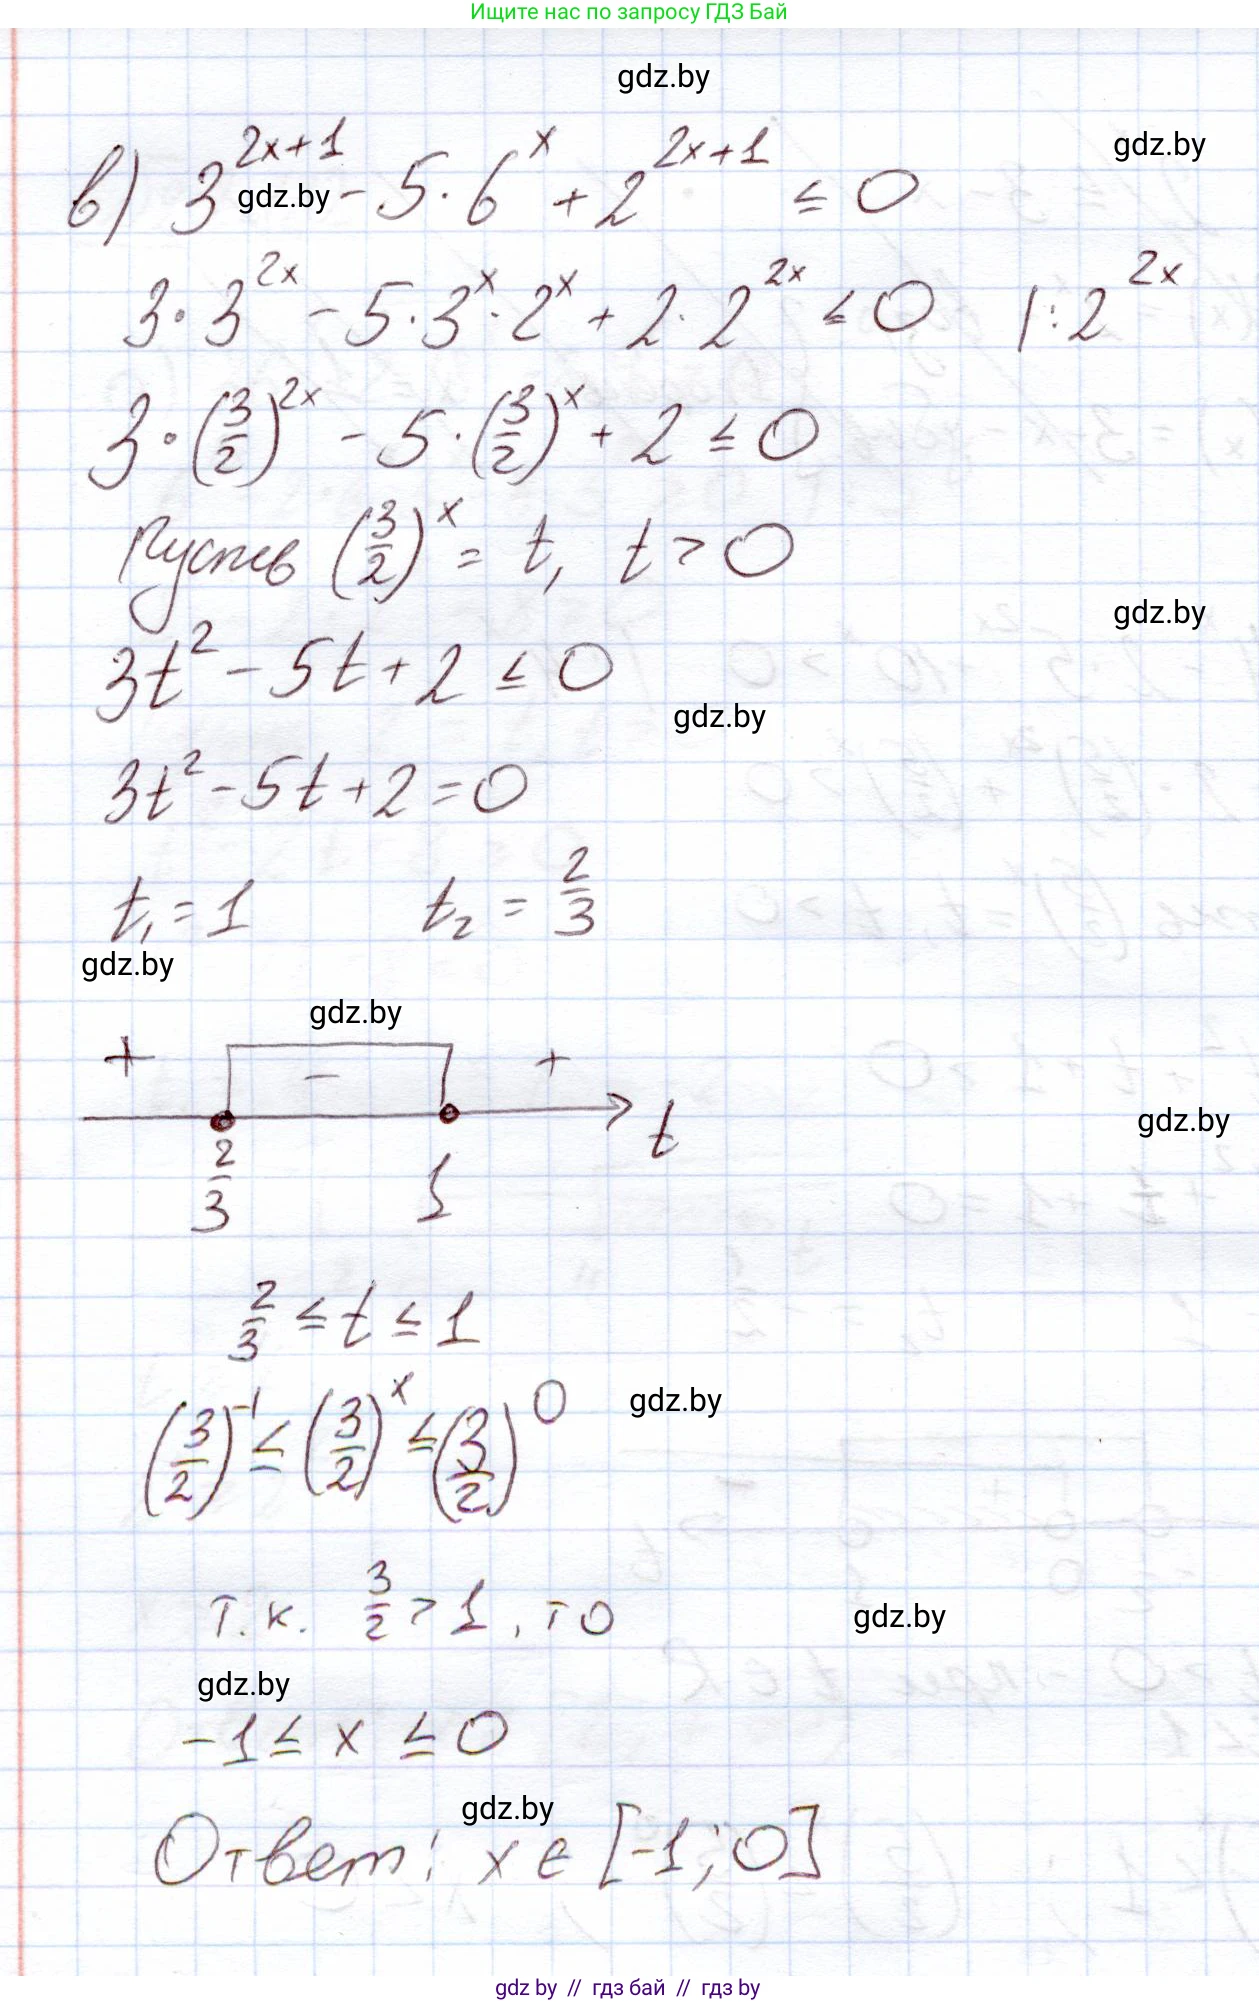 Ищите нас по запросу ГДЗ Бай
gdz.by
gdz.by
в) 3^{2x+1} - 5·6^x + 2^{2x+1} ≤ 0
gdz.by
3·3^{2x} - 5·3^x·2^x + 2·2^{2x} ≤ 0 |:2^{2x}
3·(3/2)^{2x} - 5·(3/2)^x + 2 ≤ 0
Пусть (3/2)^x = t, t > 0
gdz.by
3t² - 5t + 2 ≤ 0
gdz.by
3t² - 5t + 2 = 0
t₁ = 1 t₂ = 2/3
gdz.by
gdz.by
+ - +
t
gdz.by
2/3 1
2/3 ≤ t ≤ 1
(3/2)^{-1} ≤ (3/2)^x ≤ (3/2)^0
gdz.by
т.к. 3/2 > 1, то
gdz.by
gdz.by
-1 ≤ x ≤ 0
gdz.by
Ответ: x ∈ [-1; 0]
gdz by // гдз бай // гдз by